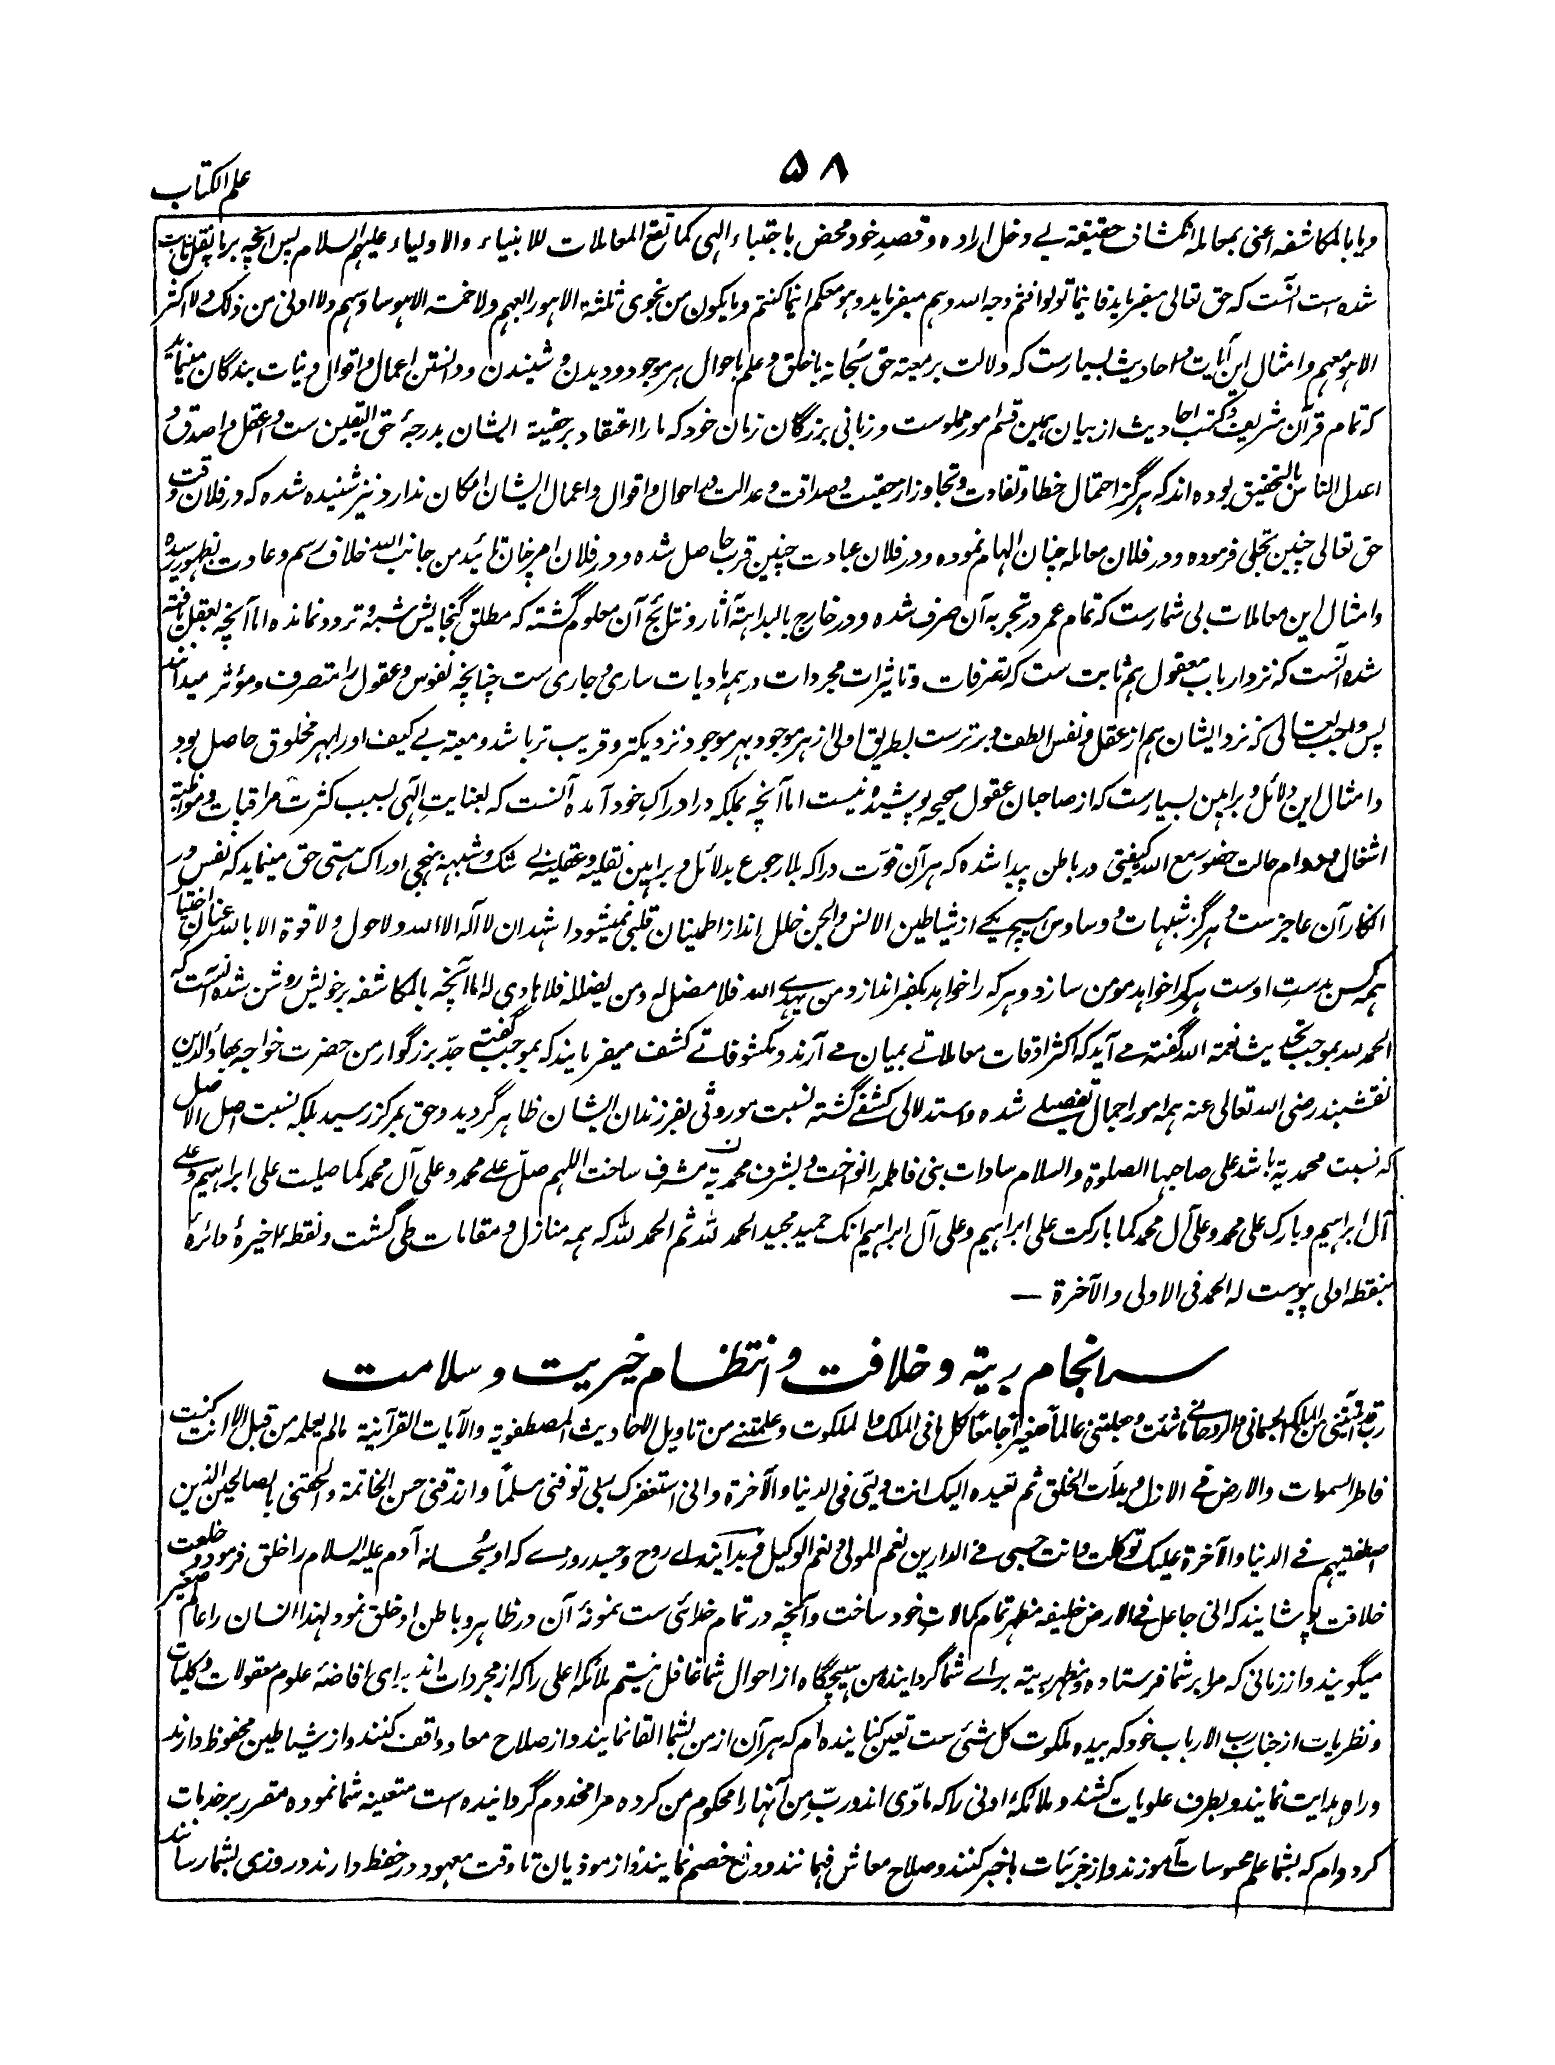 ۵۸
علم الکتاب
و یا بالمکاشفه اعنی بمعامله انکشاف حقیقة بے دخل اراده و قصدِ خود محض با جتباء الٰہی کما تقع المعاملات للانبیاء والاولیاء علیہم السلام پس آنچہ بر ما بنقل ثابت
شده است آنست که حق تعالی میفرماید فاینما تولوا فثم وجه الله و هم میفرماید و هو معکم اینما کنتم و ما یکون من نجوی ثلثة الا هو رابعهم ولا خمسة الا هو سادسهم ولا ادنی من ذلک ولا اکثر
الا هو معهم و امثال این آیات و احادیث بسیارست که دلالت بر معیة حق سبحانه با خلق و علم باحوال هر موجود و دیدن و شنیدن و دانستن اعمال و اقوال و نیات بندگان مینماید
که تمام قرآن شریف و کتب احادیث از بیان همین قسم امور مملوست و زبانی بزرگان زمان خود که ما را اعتقاد بر حقیة ایشان بدرجهٔ حق الیقین ست و اعقل و اصدق و
اعدل الناس بالتحقیق بوده اند که هرگز احتمال خطا و تفاوت و تجاوز از حقیت و صداقت و عدالت در احوال و اقوال و اعمال ایشان امکان ندارد نیز شنیده شده که در فلان وقت
حق تعالی چنین تجلی فرموده و در فلان معامله چنان الهام نموده و در فلان عبادت چنین قرب حاصل شده و در فلان امر چنان تائید من جانب الله خلاف رسم و عادت بظهور رسیده
و امثال این معاملات بی شمارست که تمام عمر در تجربه آن صرف شده و در خارج بالبداهة آثار و نتائج آن معلوم گشته که مطلق گنجایش شبه و تردد نمانده اما آنچه بعقل یافته
شده آنست که نزد ارباب معقول هم ثابت ست که تصرفات و تاثیرات مجردات در همه مادیات ساری و جاری ست چنانچه نفوس و عقول را متصرف و مؤثر میدانند
پس واجب تعالی که نزد ایشان هم از عقل و نفس الطف و برترست بطریق اولی از هر موجود بهر موجود نزدیکتر و قریب تر باشد و معیة بے کیف او را بهر مخلوق حاصل بود
و امثال این دلائل و براهین بسیارست که از صاحبان عقول صحیحه پوشیده نیست اما آنچه بملکه در ادراک خود آمده آنست که بعنایت الٰهی بسبب کثرت مراقبات و مواظبة
اشغال و دوام حالت حضور مع الله کیفیتی در باطن پیدا شده که هر آن قوت دراکه بلا رجوع بدلائل و براهین نقلیه و عقلیه بے شک و شبهه بنهجی ادراک هستی حق مینماید که نفس در
انکار آن عاجزست و هرگز شبهات و وساوس هیچ یکے از شیاطین الانس والجن خلل انداز اطمینان قلبی نمیشود اشهد ان لا اله الا الله ولا حول ولا قوة الا بالله عنان اختیار
همه کس بدست اوست هر کرا خواهد مومن سازد و هر که را خواهد بکفر اندازد و من یهدے الله فلا مضل له و من یضلله فلا هادی له اما آنچه بالمکاشفه بر خویش روشن شده آنست که
الحمد لله بموجب تحدیث نعمة الله گفته مے آید که اکثر اوقات معاملاتے بمیان مے آرند و مکشوفاتے کشف میفرمایند که بموجب گفتے جد بزرگوار من حضرت خواجه بهاؤالدین
نقشبند رضی الله تعالی عنه همه امور اجمالی تفصیلے شده و استدلالی کشفے گشته نسبت موروثی بفرزندان ایشان ظاهر گردید و حق بمرکز رسید بلکه نسبت اصل الاصل
که نسبت محمدیة باشد علی صاحبها الصلوة والسلام سادات بنی فاطمه را نواخت و بشرف محمدیة مشرف ساخت اللهم صلّ علے محمد و علی آل محمد کما صلیت علی ابراهیم و علے
آل ابراهیم و بارک علی محمد و علی آل محمد کما بارکت علی ابراهیم و علی آل ابراهیم انک حمید مجید الحمد لله ثم الحمد لله که همه منازل و مقامات طی گشت و نقطهٔ اخیرهٔ دائرهٔ
بنقطه اولی پیوست له الحمد فی الاولی والآخرة —
سرانجام ربیة و خلافت و انتظام خیریت و سلامت
رب قد آتیتنی من الملک الجسمانی والروحانی ما شئت و جعلتنی عالماً صغیراً جامعاً لکل ما فی الملک والملکوت و علمتنے من تاویل الاحادیث المصطفویة والآیات القرآنیة مالم یعلمه من قبل الا انت کنت
فاطر السموات والارض فے الازل و بدأت الخلق ثم تعیده الیک انت ولیّی فی الدنیا والآخرة وانی استغفرک ربی توفنی مسلماً وارزقنی حسن الخاتمة والحقنی بالصالحین الذین
اصطفیتهم فے الدنیا والآخرة علیک توکلت وانت حسبی فے الدارین نعم المولی و نعم الوکیل بدآنید اے روح و جسد روزے که او سُبحانه آدم علیه السلام را خلق فرمود و خلعت
خلافت پوشانید که انی جاعل فی الارض خلیفه مظهر تمام کمالات خود ساخت و آنچه در تمام خدائی ست نمونهٔ آن در ظاهر و باطن او خلق نمود لهذا انسان را عالم صغیر
میگویند و از زبانی که مرا بر شما فرستاده و مظهر ربیة براے شما گردانیده من هیچگاه از احوال شما غافل نیستم ملائکه اعلی را که از مجردات اند برای افاضهٔ علوم معقولات و کلیات
و نظریات از جناب رب الارباب خود که بیده ملکوت کل شئ ست تعین کنانیده ام که هر آن از من بشما القا نمایند و از صلاح معاد واقف کنند و از شیاطین محفوظ دارند
و راه هدایت نمایند و بطرف علویات کشند و ملائکهٔ ادنی را که مادّی اند و ربّ من آنها را محکوم من کرده مرا مخدوم گردانیده است متعینه شما نموده مقرر بر خدمات
کرده ام که بشما علم محسوسات آموزند و از جزئیات باخبر کنند و صلاح معاش فهمانند و دفع خصم نمایند و از موذیان تا وقت معهود در حفظ دارند و روزی بشما رسانند